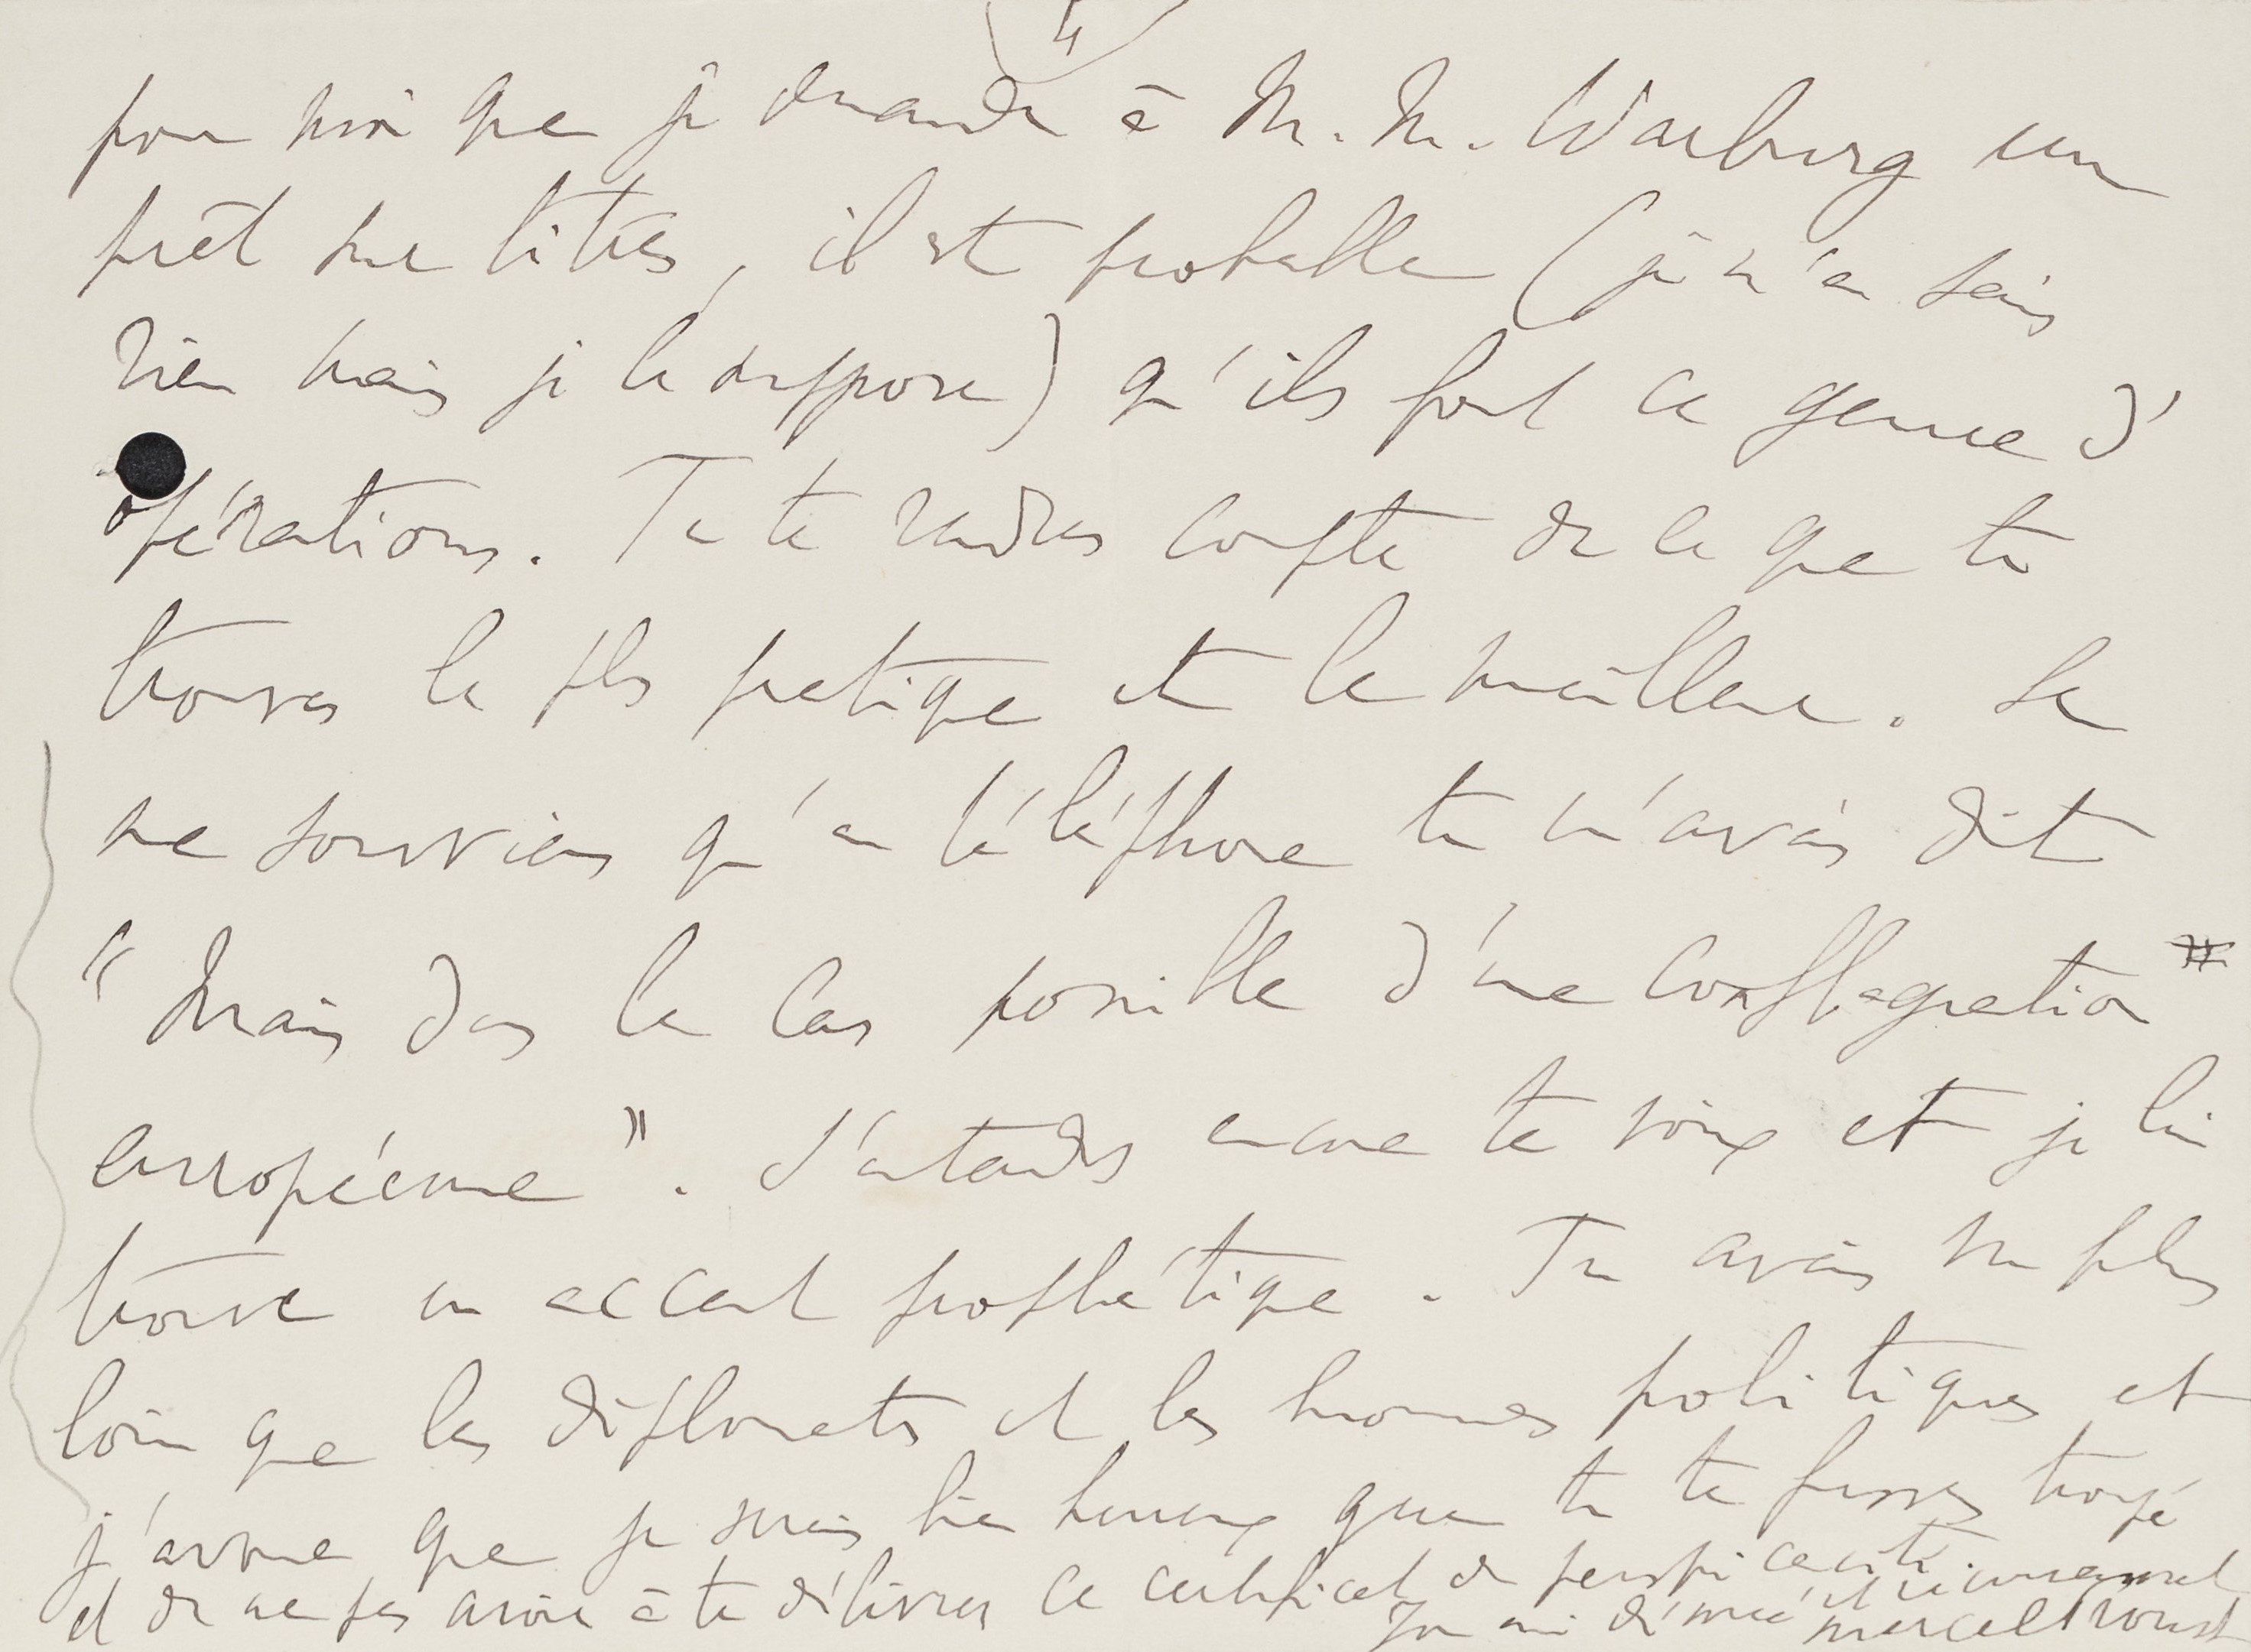 4
pour moi que je demande à M. M. Warburg un
prêt sur titres, il est probable (je n'en sais
rien mais je le suppose) qu'ils font ce genre d'
opérations. Tu te rendras compte de ce que tu
trouves le plus pratique et le meilleur. Je
me souviens qu'au téléphone tu m'avais dit
"Mais dans le cas possible d'une conflagration
européenne". J'entends encore ta voix et je lui
trouve un accent prophétique. Tu avais vu plus
loin que les diplomates et les hommes politiques et
j'avoue que je serais bien heureux que tu te fusses trompé
et de ne pas avoir à te délivrer ce certificat de perspicacité
Ton ami dévoué et reconnaissant
Marcel Proust